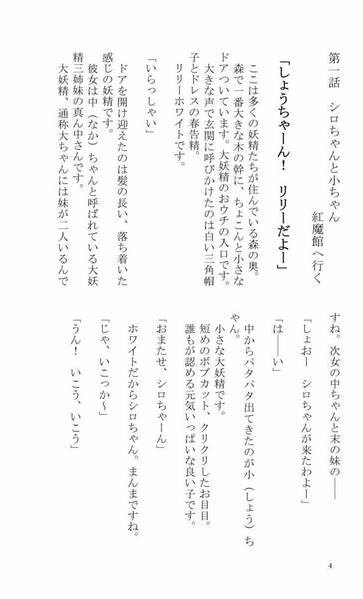 第一話　シロちゃんと小ちゃん
紅魔館へ行く
「しょうちゃーん！　リリーだよー」
ここは多くの妖精たちが住んでいる森の奥。
森で一番大きな木の幹に、ちょこんと小さな
ドアついています。大妖精のおウチの入口です。
大きな声で玄関に呼びかけたのは白い三角帽
子とドレスの春告精。
リリーホワイトです。
「いらっしゃい」
ドアを開け迎えたのは髪の長い、落ち着いた
感じの妖精です。
彼女は中（なか）ちゃんと呼ばれている大妖
精三姉妹の真ん中さんです。
大妖精、通称大ちゃんには妹が二人いるんで
すね。次女の中ちゃんと末の妹の――
「しょおー　シロちゃんが来たわよー」
「は――い」
中からパタパタ出てきたのが小（しょう）ち
ゃん。
小さな大妖精です。
短めのボブカット、クリクリしたお目目。
誰もが認める元気いっぱいな良い子です。
「おまたせ、シロちゃーん」
ホワイトだからシロちゃん。まんまですね。
「じゃ、いこっか～」
「うん！　いこう、いこう」
4